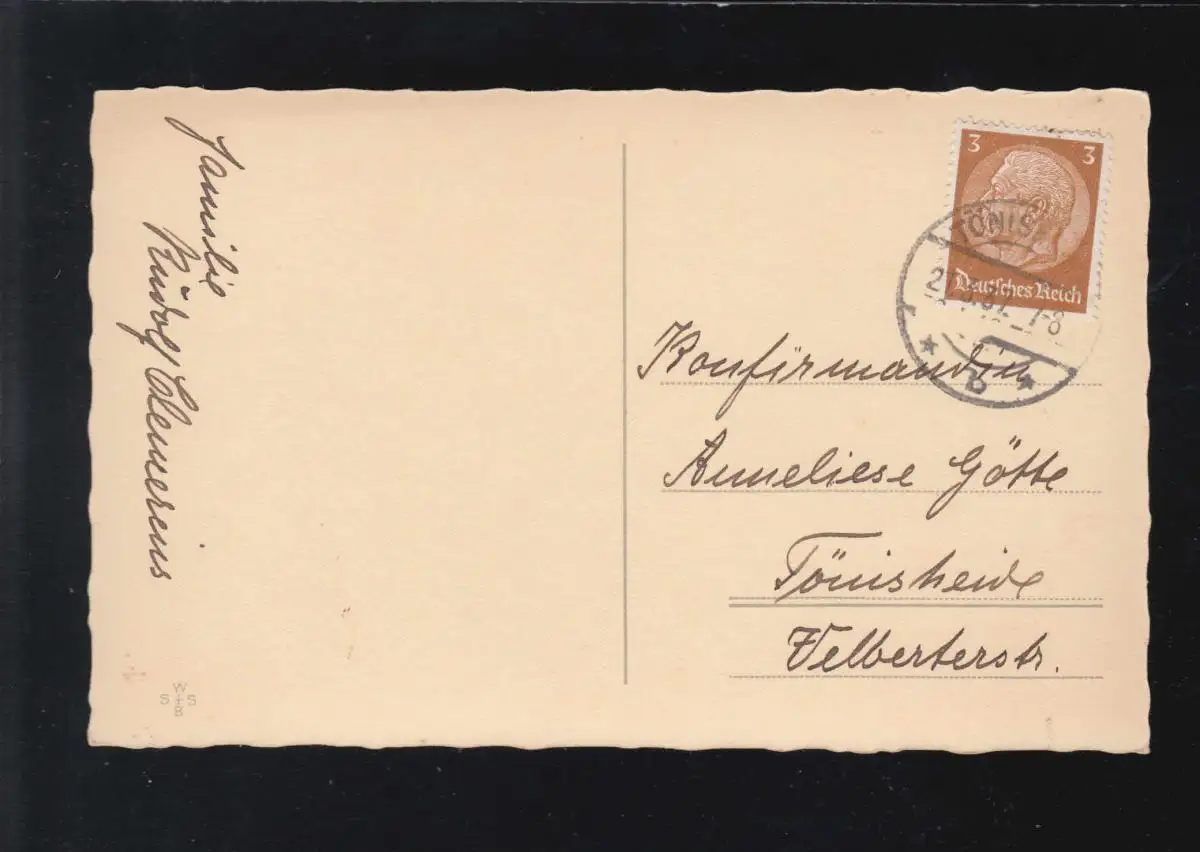 Familie
Rudolf Clemerius
3 3
Deutsches Reich
TÖNIS
7-8
b
Konfirmandin
Anneliese Götte
Tönisheide
Velberterstr.
W
S + S
B